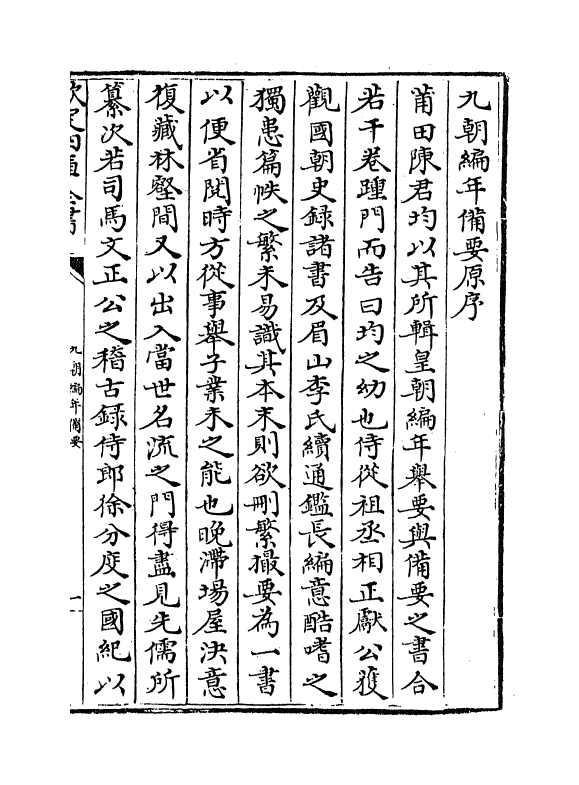 九朝編年備要原序
莆田陳君均以其所輯皇朝編年舉要與備要之書合
若干卷踵門而告曰均之幼也侍從祖丞相正獻公獲
觀國朝史録諸書及眉山李氏續通鑑長編意酷嗜之
獨患篇帙之繁未易識其本末則欲刪繁撮要為一書
以便省閱時方從事舉子業未之能也晚滯場屋決意
復藏林壑間又以出入當世名流之門得盡見先儒所
纂次若司馬文正公之稽古録侍郎徐公度之國紀以
欽定四庫全書
九朝編年備要
一